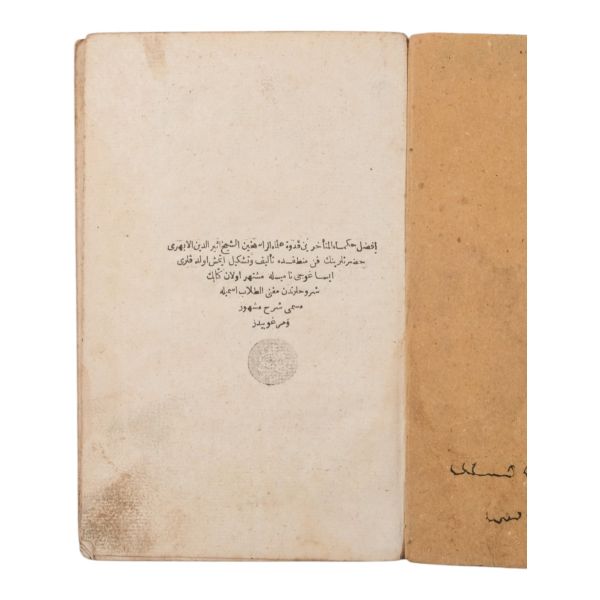 افضل حكماء المتأخرين قدوة علماء الراسخين الشيخ اثير الدين الابهرى
حضرتلرينك فن منطقده تأليف وتشكيل ايتمش اولدقلرى
ايساغوجى ناميله مشتهر اولان كتابك
شروحلرندن مغنى الطلاب اسميله
مسمى شرح مشهور
ومرغوبيدر